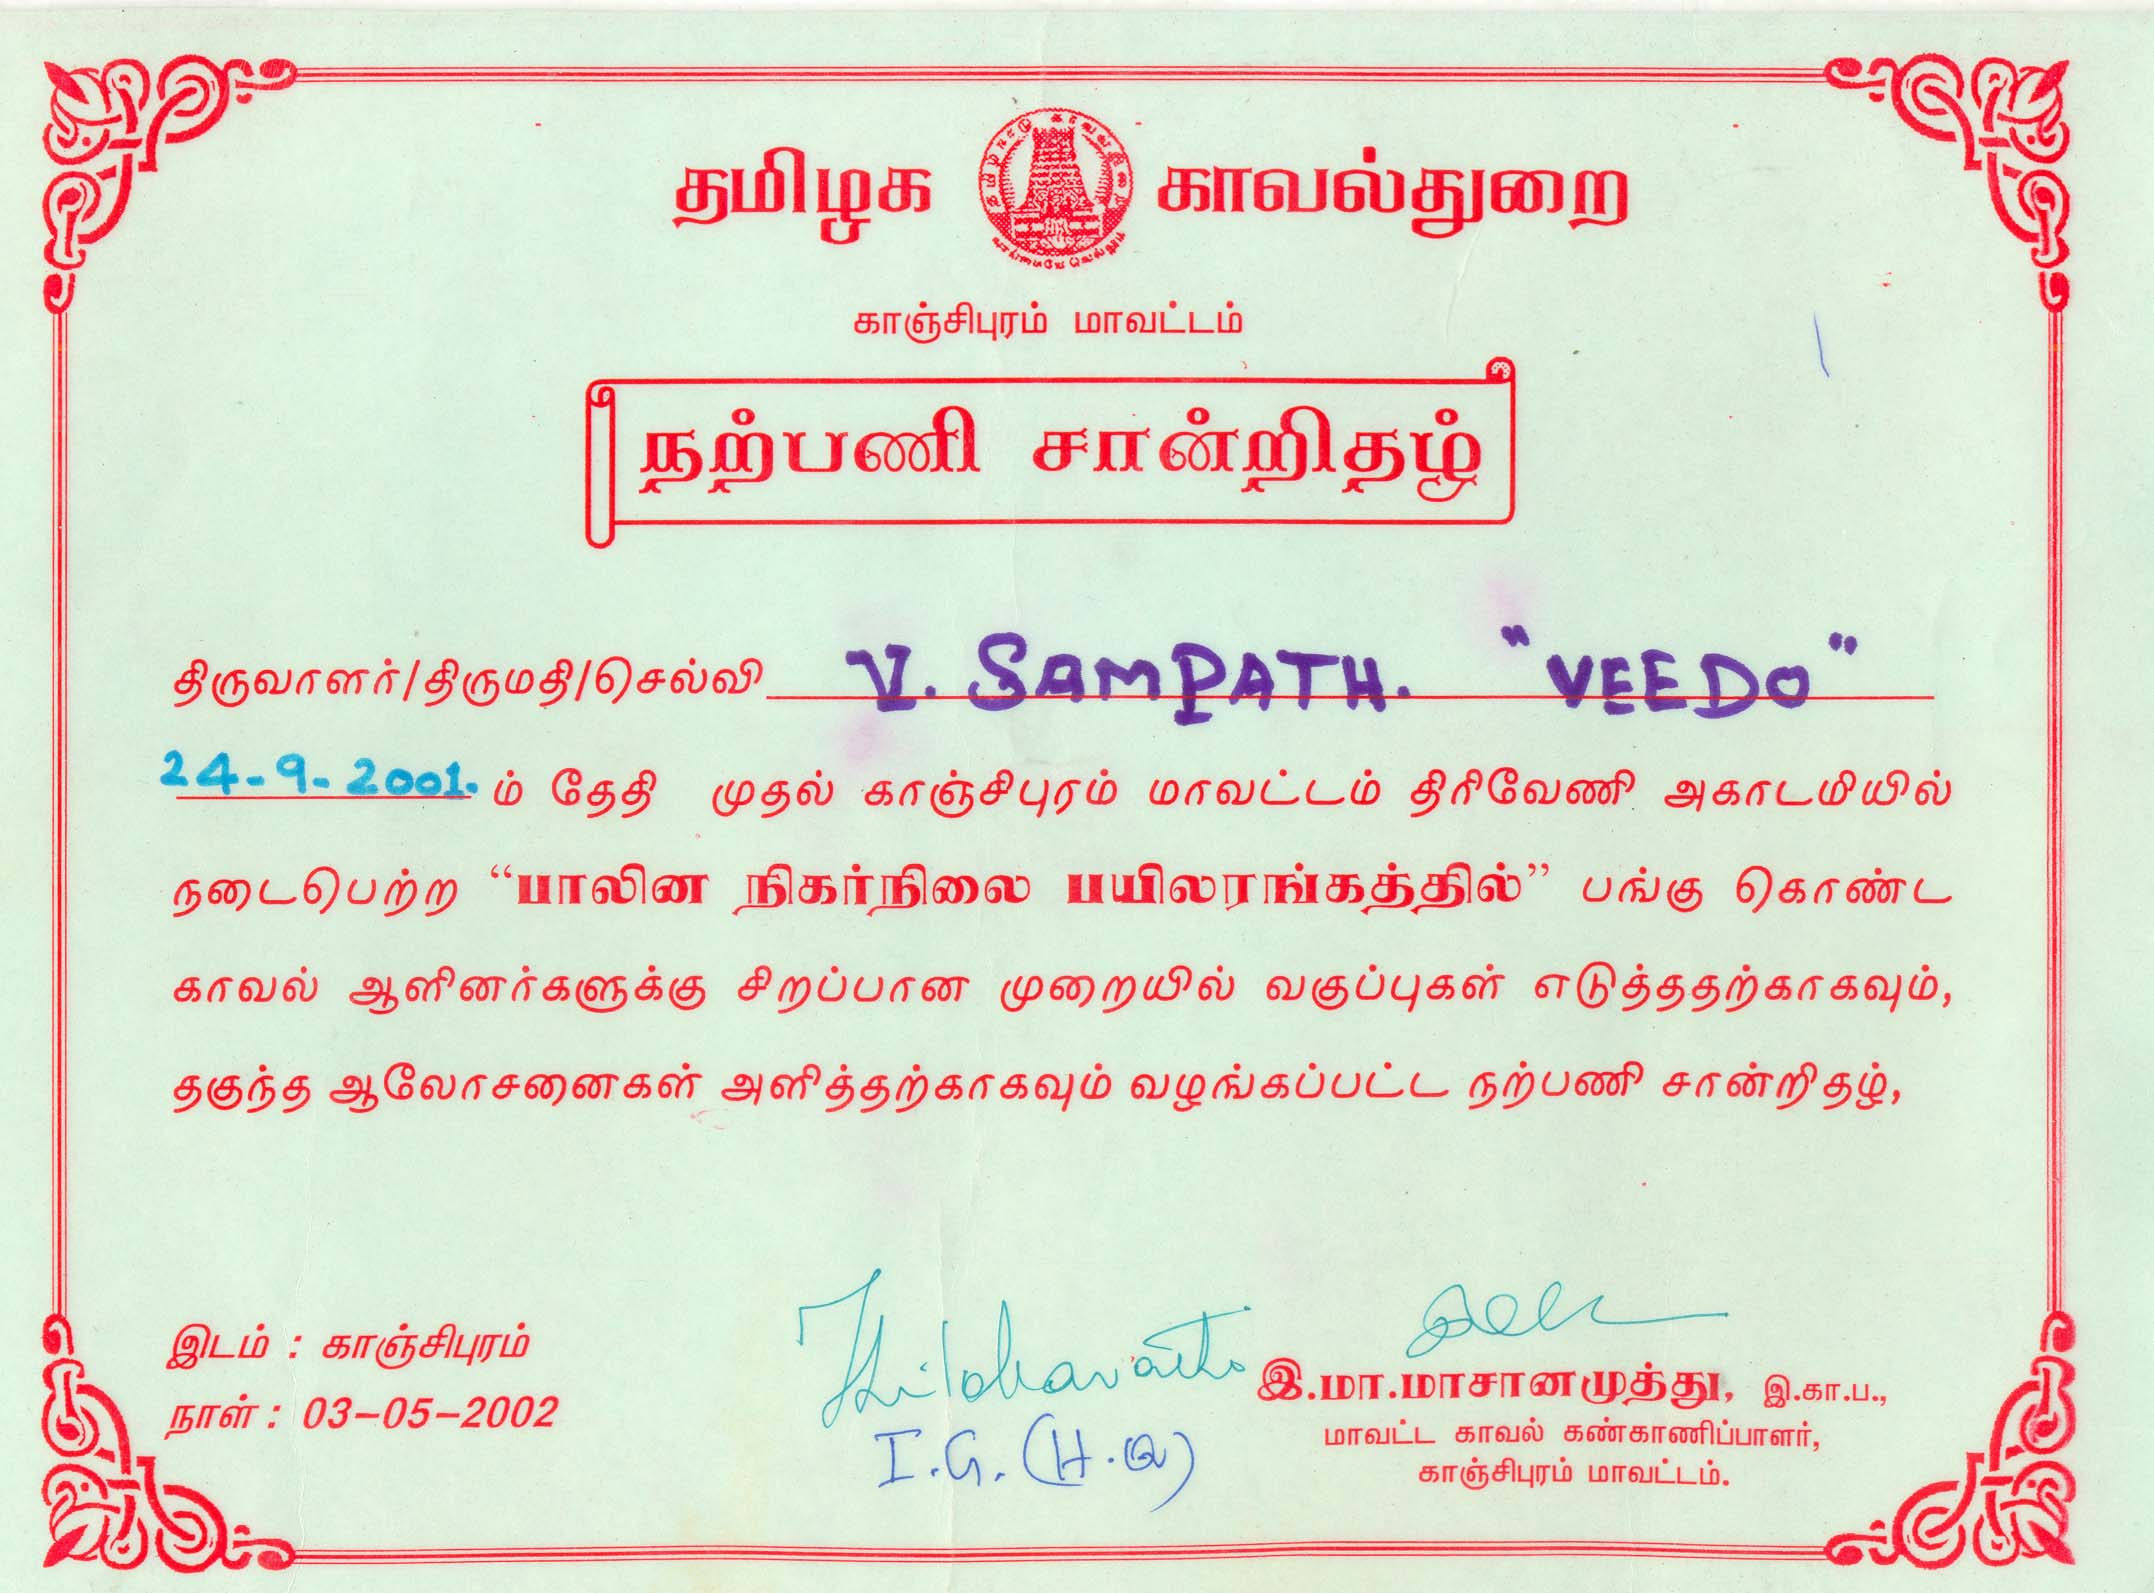 தமிழக காவல்துறை
தமிழ்நாடு காவல்துறை
வாய்மையே வெல்லும்
காஞ்சிபுரம் மாவட்டம்
நற்பணி சான்றிதழ்
திருவாளர்/திருமதி/செல்வி V. SAMPATH. "VEEDO"
24-9-2001. ம் தேதி முதல் காஞ்சிபுரம் மாவட்டம் திரிவேணி அகாடமியில்
நடைபெற்ற “பாலின நிகர்நிலை பயிலரங்கத்தில்” பங்கு கொண்ட
காவல் ஆளினர்களுக்கு சிறப்பான முறையில் வகுப்புகள் எடுத்ததற்காகவும்,
தகுந்த ஆலோசனைகள் அளித்தற்காகவும் வழங்கப்பட்ட நற்பணி சான்றிதழ்,
இடம் : காஞ்சிபுரம்
நாள் : 03-05-2002
I.G. (H.Q)
இ.மா.மாசானமுத்து, இ.கா.ப.,
மாவட்ட காவல் கண்காணிப்பாளர்,
காஞ்சிபுரம் மாவட்டம்.